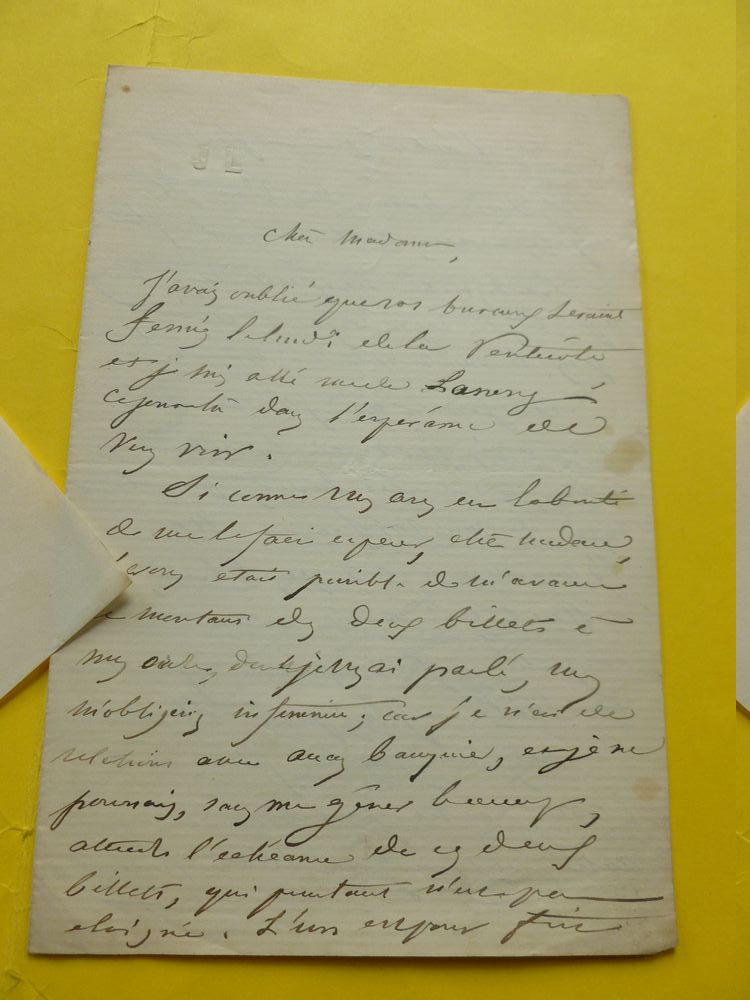 JL
Chère Madame,
J'avais oublié que vos bureaux seraient
fermés le lundi de la Pentecôte
et je suis allé
cejourlà dans l'espérance de
vous voir.
Si comme vous avez eu la bonté
de me le faire espérer, chère madame,
étais possible de m'avancer
montant des deux billets à
mon ordre, dont je vous ai parlé, vous
m'obligeriez infiniment, car je n'ai de
relations avec aucun banquier, et je ne
pourrais, sans me gêner beaucoup,
attendre l'échéance de ces deux
billets, qui pourtant n'est pas
éloignée. L'un est pour fin